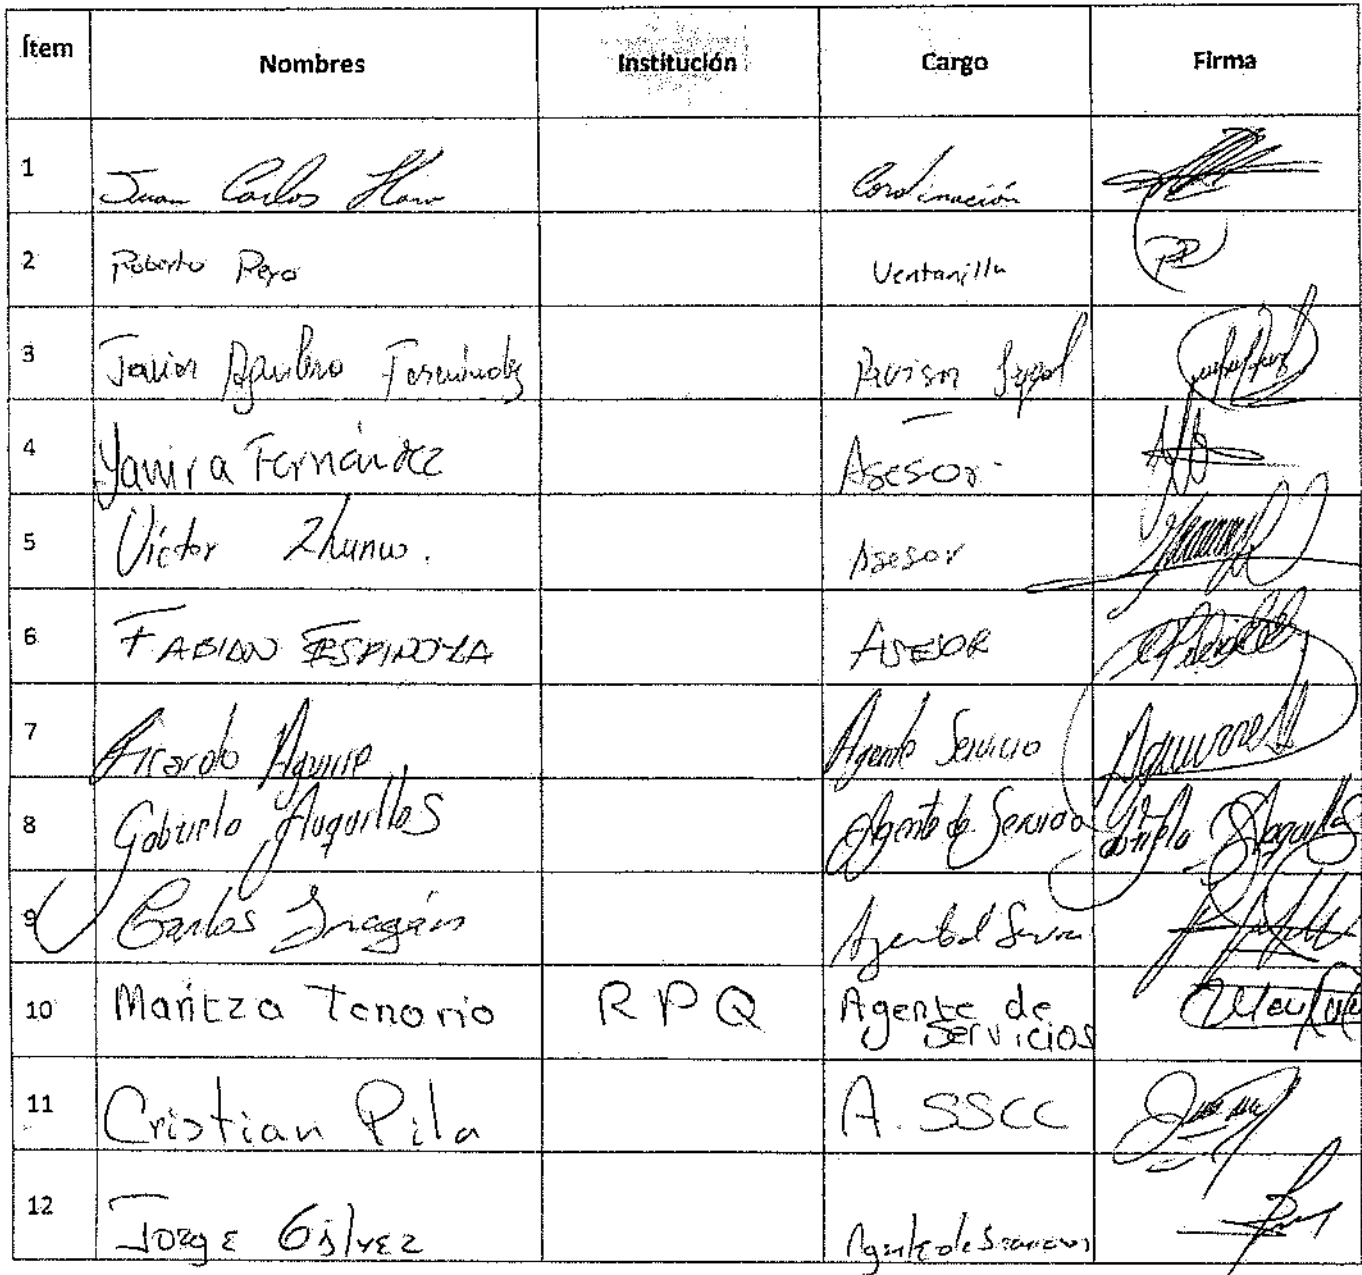 Ítem Nombres Institución Cargo Firma
1 Juan Carlos Haro Coordinación
2 Roberto Ventanilla
3 Javier Aguilera Fernández
4 Yanira Fernández Asesor
5 Víctor Asesor
6 FABIAN ESPINOZA ASESOR
7 Ricardo Aguirre Agente Servicio
8 Gabriela Auquillas Agente de Servicio
9 Carlos
10 Maritza Tenorio RPQ Agente de
Servicios
11 Cristian Pila A. SSCC
12 Jorge Gálvez Agente de Servicios